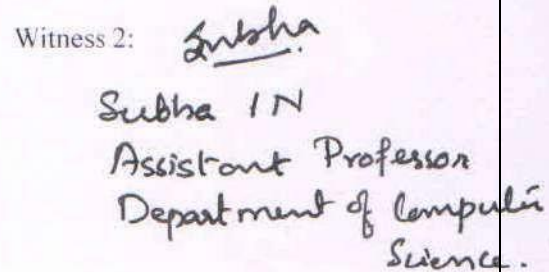 Witness 2: Subha
Subha IN
Assistant Professor
Department of Computer
Science.